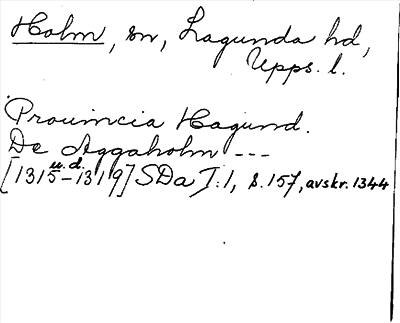 Holm, sn, Lagunda hd,
Upps. l.
Prouincia Hagund.
De Aggaholm ---
u.d.
[1315-1319] SDa I:1, s. 157, avskr. 1344